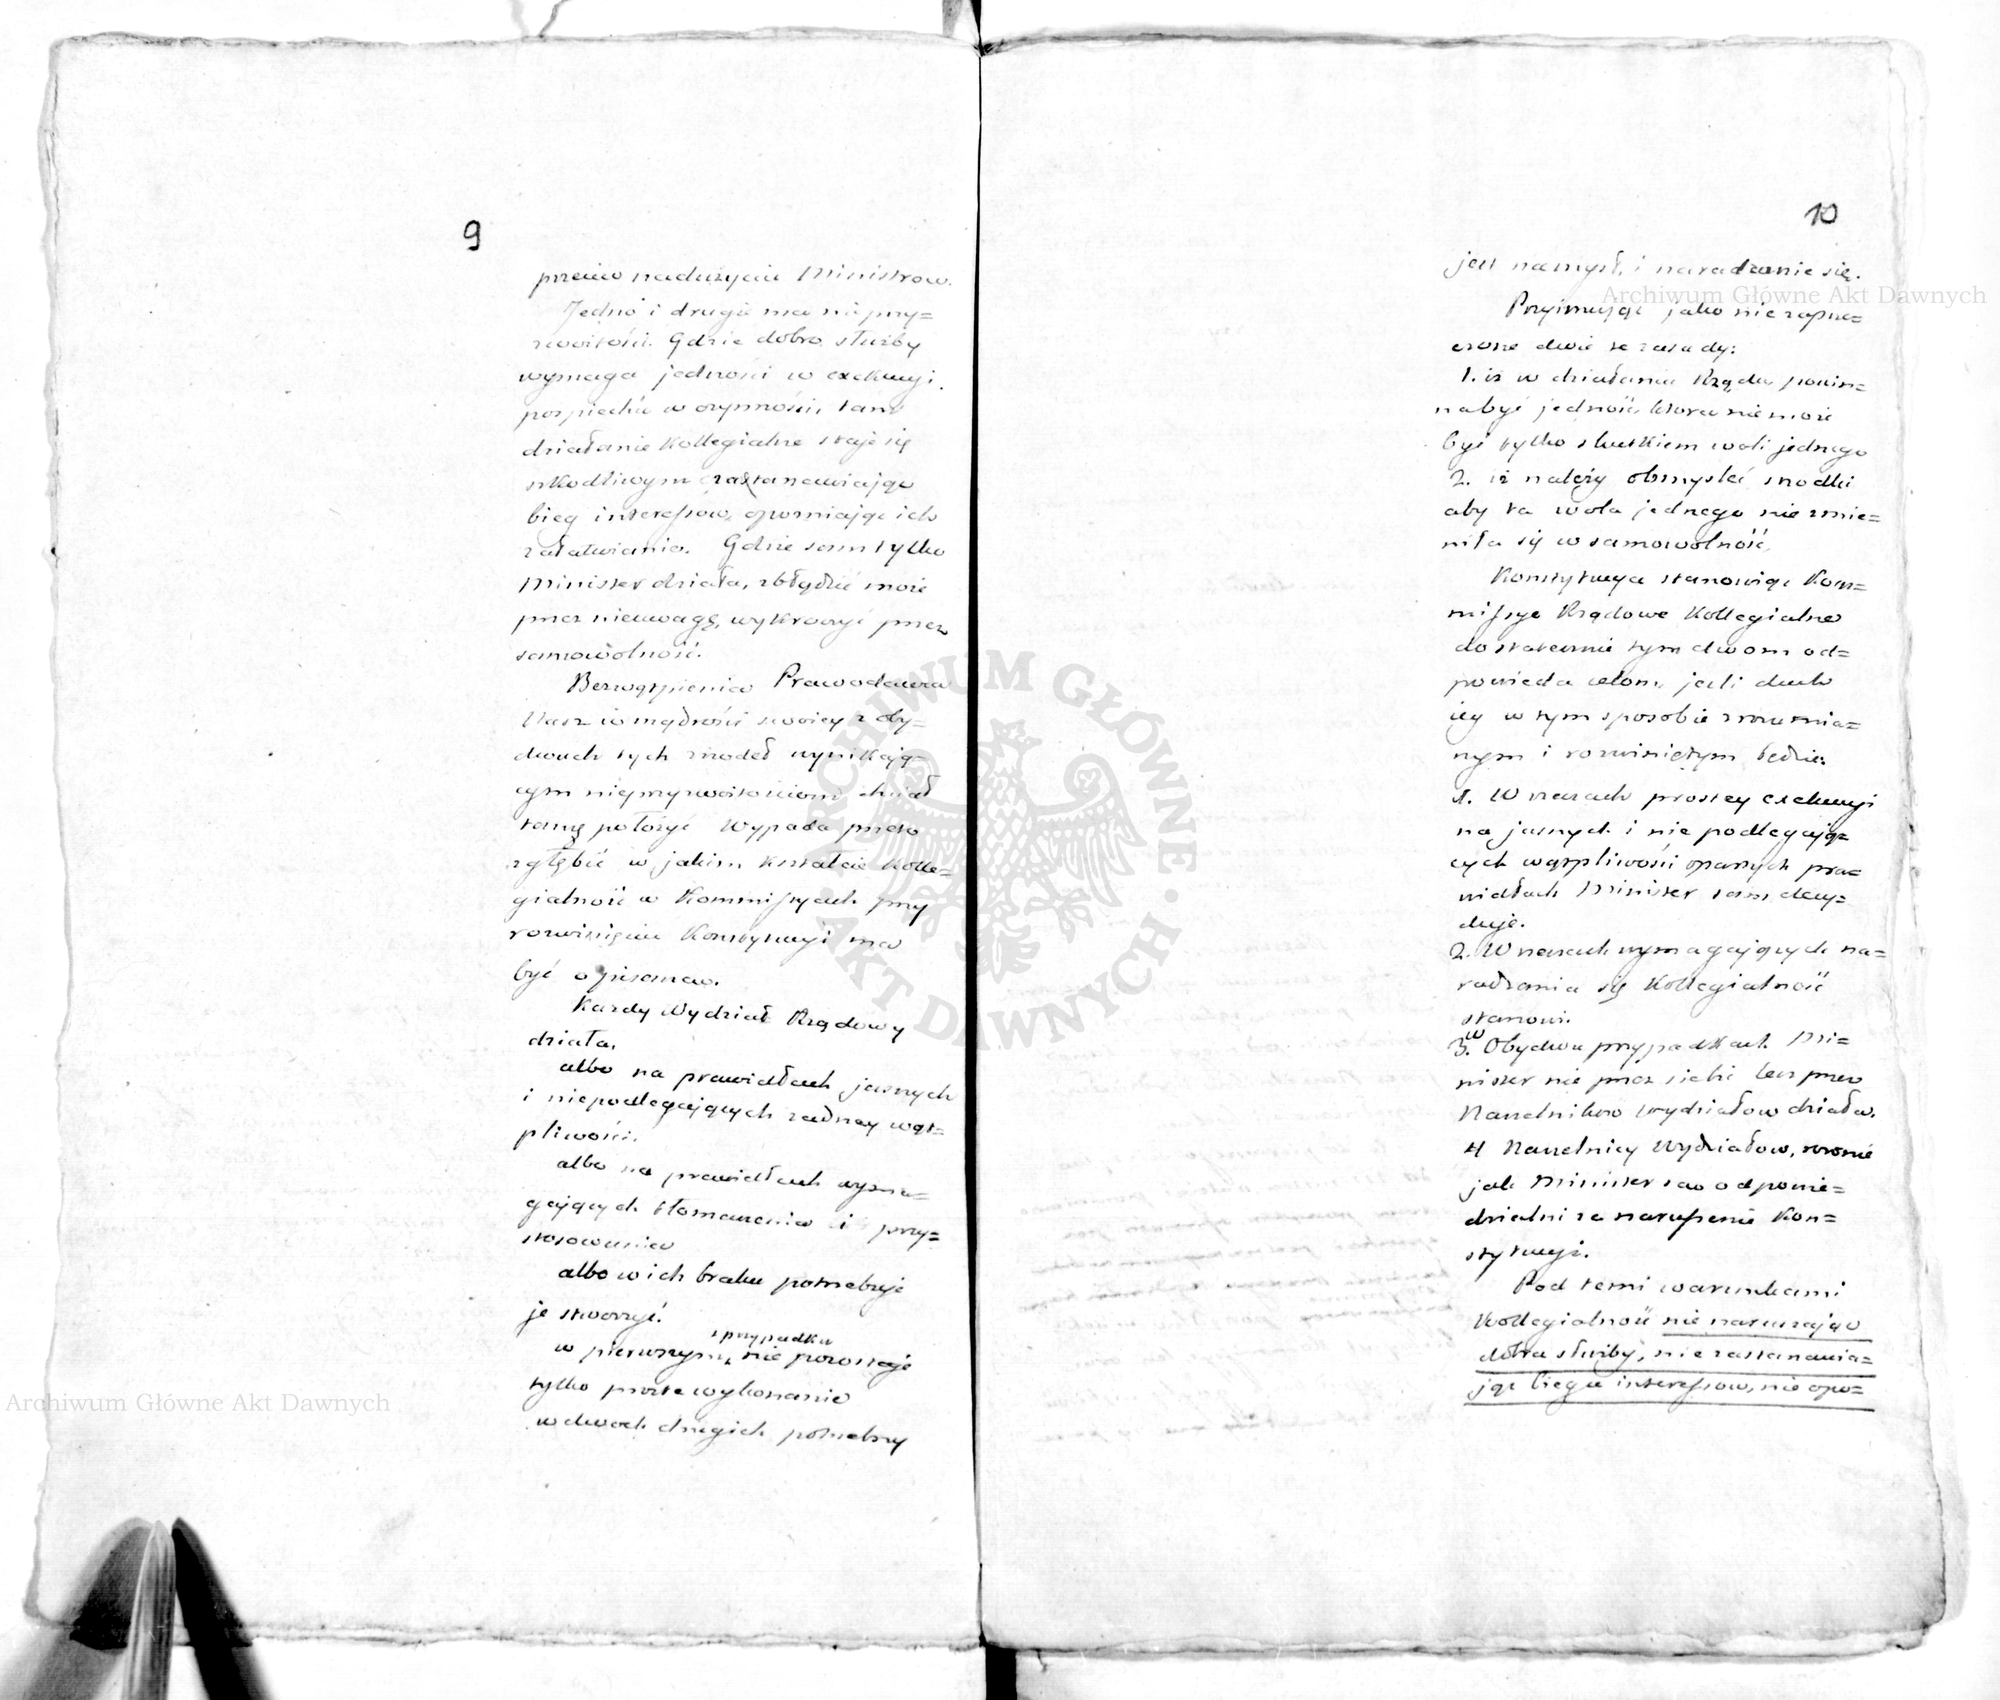 9
przeciw nadużyciu Ministrow.
Jedno i drugie ma nieprzy=
zwoitości. Gdzie dobro służby
wymaga jedności w exekucyi,
pospiechu w czynności, tam
działanie Kollegialne staje się
szkodliwym zastanawiając
bieg interessow, opozniając ich
załatwianie. Gdzie sam tylko
Minister działa, zbłądzić może
przez nieuwagę, wykroczyć przez
samowolność.
Bezwątpienia Prawodawca
Nasz w mądrości swoiey z oby=
dwuch tych zrodeł wynikają=
cym nieprzyzwoitościom chciał
tamę położyć Wypada przeto
zgłębić w jakim kształcie Kolle=
gialność w Kommissyach przy
rozwinięciu Konstytucyi ma
być opisana.
Każdy Wydział Rządowy
działa,
albo na prawidłach jasnych
i niepodlegających żadney wąt=
pliwości.
albo na prawidłach wyma=
gających tłomaczenia i przy=
stosowania
albo w ich braku potrzebuje
je stworzyć.
przypadku
w pierwszym, nie pozostaje
tylko proste wykonanie
w dwoch drugich potrzebny
10
jest namysł, i naradzanie się.
Przyimując jako nie zaprze=
czone dwie te zasady:
1. iż w działaniu Rządu powin=
na być jedność, ktora nie może
być tylko skutkiem woli jednego
2. iż należy obmyśleć srodki
aby ta wola jednego nie zmie=
niła się w samowolność,
Konstytucya stanowiąc Kom=
missye Rządowe Kollegialne
dostatecznie tym dwom od=
powiada celom, jeśli duch
iey w tym sposobie zrozumia=
nym i rozwiniętym będzie.
1. W rzeczach prostey exekucyi
na jasnych i nie podlegają=
cych wątpliwości opartych pra=
widłach Minister sam decy=
duje.
2. W rzeczach wymagających na=
radzania się Kollegialność
stanowi.
w
3. Obydwu przypadkach Mi=
nister nie przez siebie lecz przez
Naczelnikow wydziałow działa.
4 Naczelnicy Wydziałow, rownie
jak Minister są odpowie=
dzialni za narussenie Kon=
stytucyi.
Pod temi warunkami
Kollegialność nie naruszając
dobra służby, nie zastanawia=
jąc biegu interessow, nie opo=
Archiwum Główne Akt Dawnych
Archiwum Główne Akt Dawnych
ARCHIWUM GŁÓWNE · AKT DAWNYCH ·